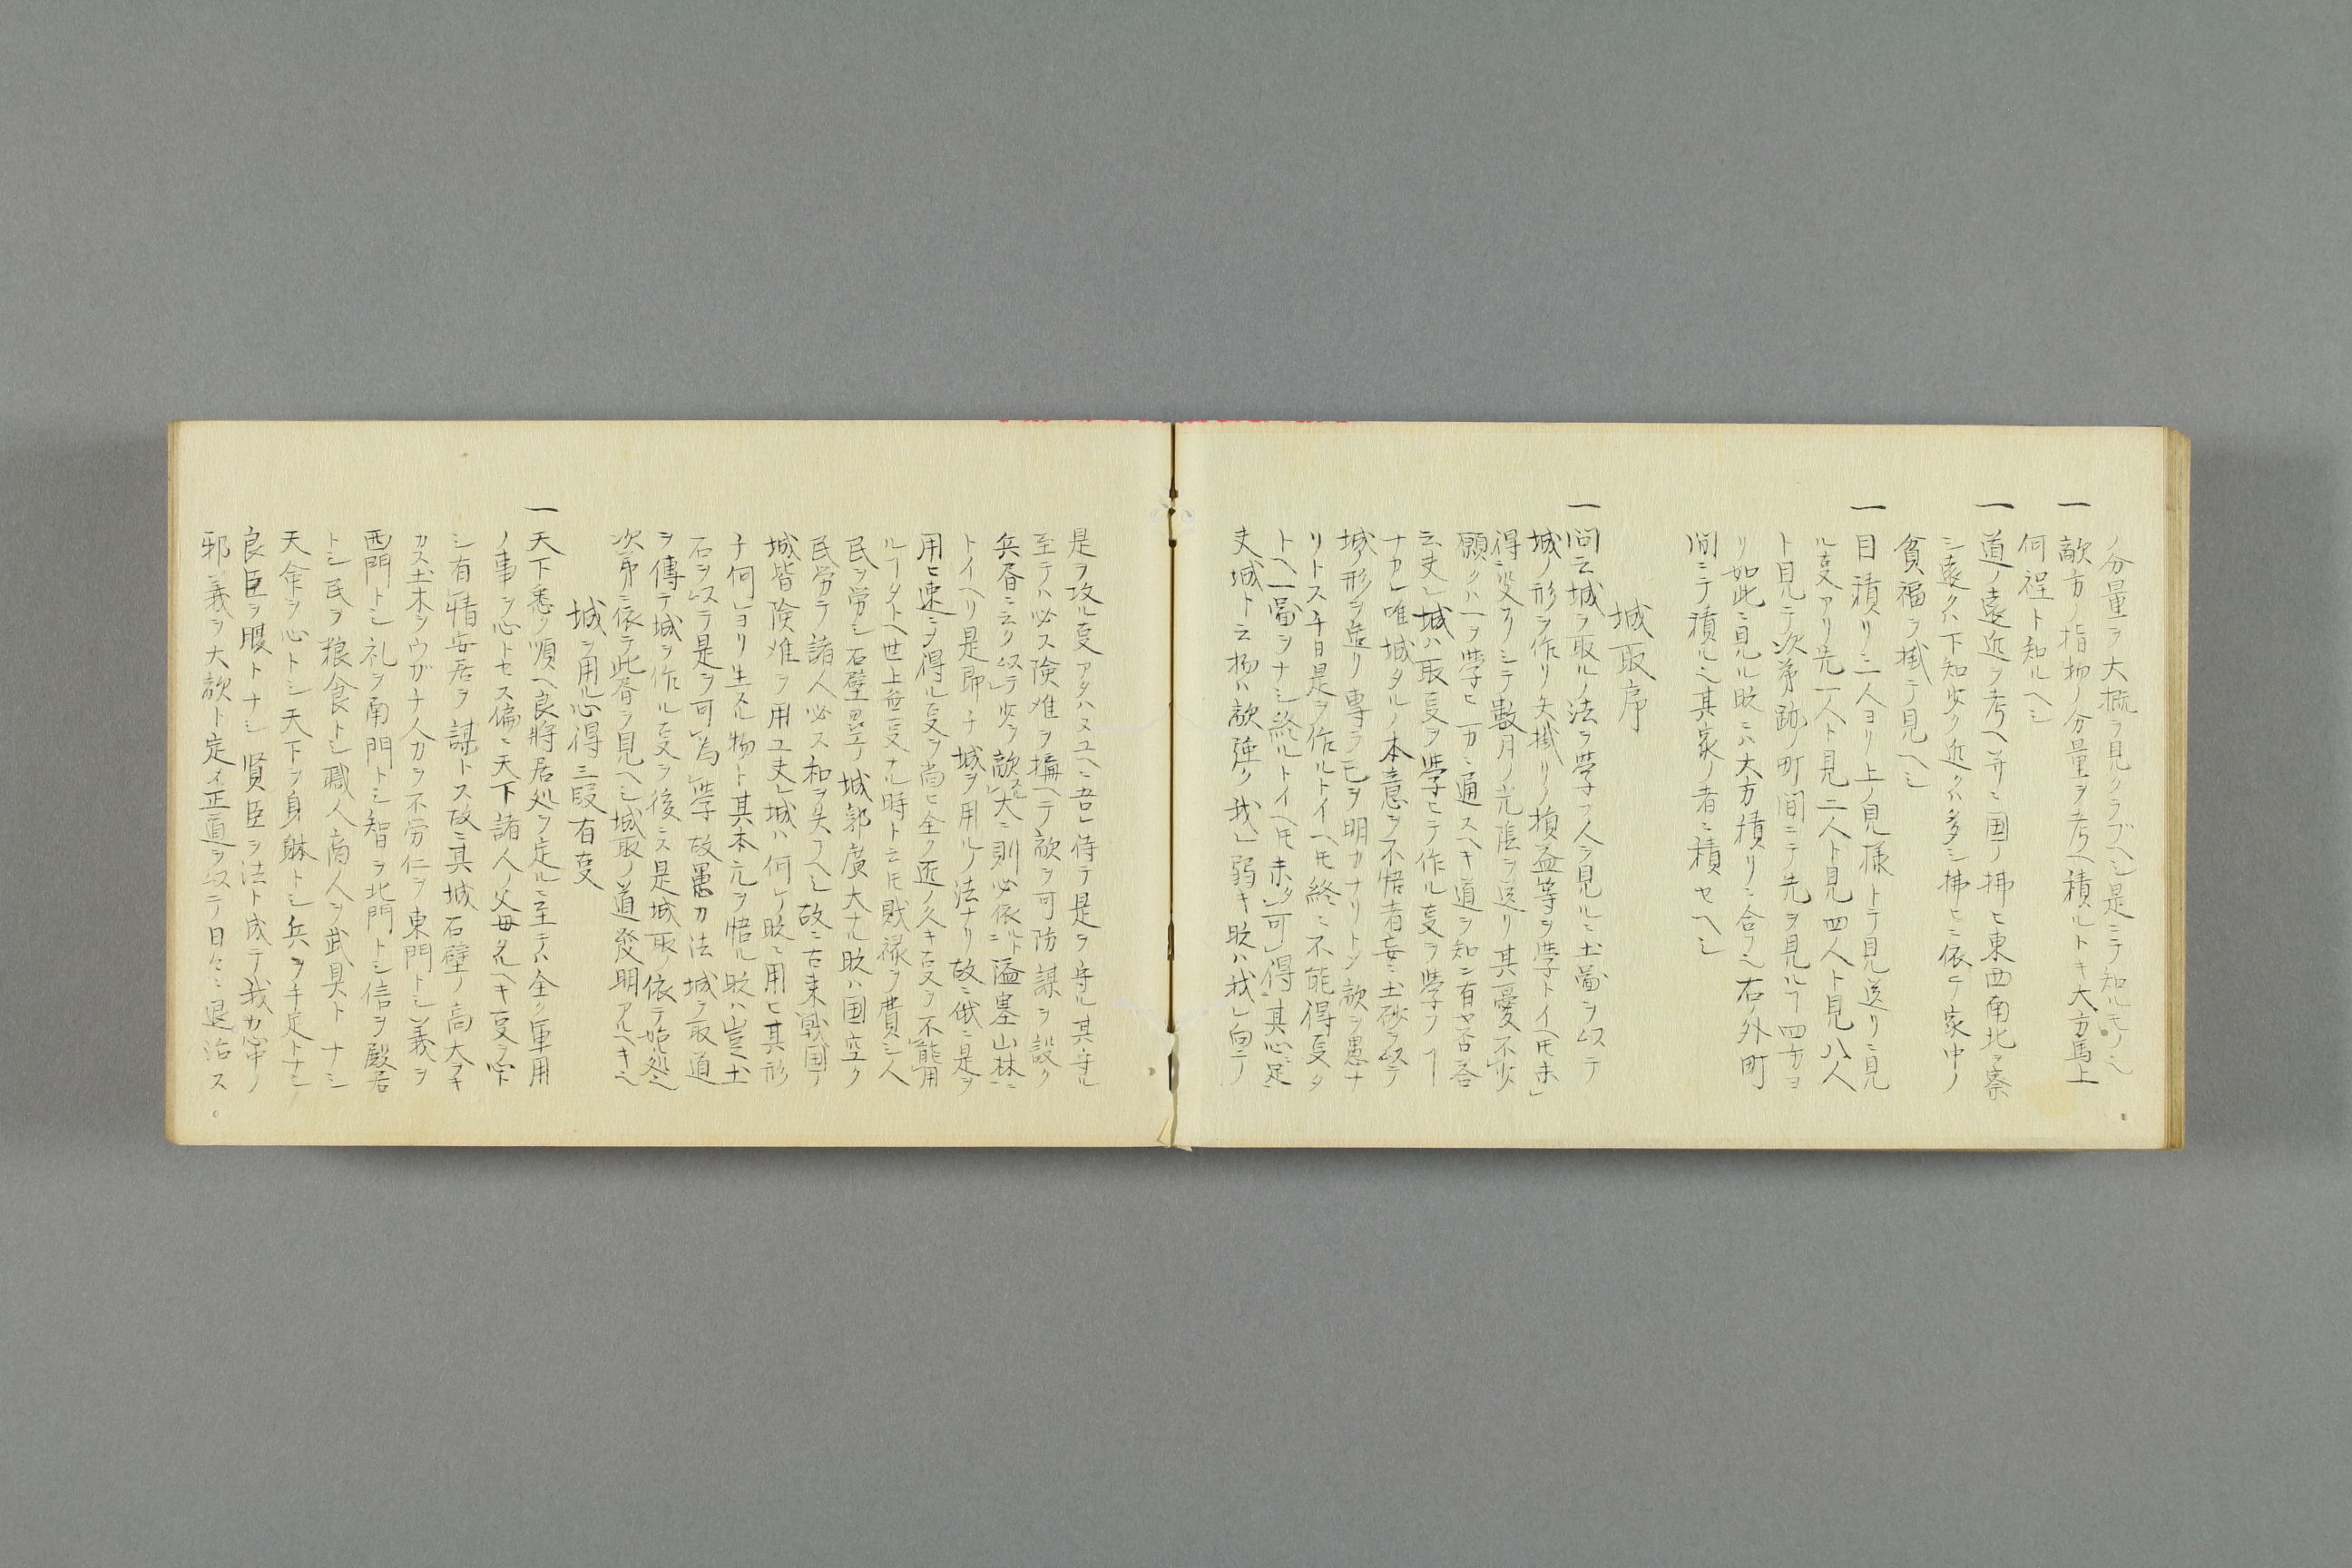 ノ分量ヲ大概ヲ見クラブヘシ是ニテ知ルモノ也
一 敵方ノ指物ノ分量ヲ考ヘ積ルトキ大方馬上
何程ト知ルヘシ
一 道ノ遠近ヲ考ヘ并ニ国ノ押ヒ東西南北ヲ察
シ遠クハ下知少ク近クハ多シ押ヒニ依テ家中ノ
貧福ヲ掛テ見ヘシ
一 目積リニ人ヨリ上ノ見様トテ見送リニ見
ル叓アリ先一人ト見二人ト見四人ト見八人
ト見テ次第跡ノ町間ニテ先ヲ見ルヿ四方ヨ
リ如此ニ見ル時ニハ大方積リニ合フヘ右ノ外町
間ニテ積ル也其家ノ者ニ積セヘシ
城取序
一 問云城ヲ取ルノ法ヲ學フ人ヲ見ルニ土圖ヲ以テ
城ノ形ヲ作リ矢掛リノ損益等ヲ學トイヘ𪜈未
得叓フリシテ數月ノ光陰ヲ送リ其憂不少
願クハ一ヲ學ヒ万ニ通スヘキ道ヲ知ニ有ヤ否答
云夫城ハ取叓ヲ學ヒテ作ル叓ヲ學フヿ
ナカレ唯城タルノ本意ヲ不悟者妄ニ土砂ヲ以テ
城ノ形ヲ造リ專ラ己ヲ明カナリトメ敵ヲ愚ナ
リトス千日是ヲ作ルトイヘ𪜈終ニ不能得叓タ
トヘ一圖ヲナシ終ルトイヘ𪜈未タ可得其心足
夫城ト云物ハ敵強ク我弱キ時ハ我向テ
是ヲ攻ル叓アタハスユヘニ吾待テ是ヲ守ル其守ル
至テハ必ス険难ヲ搆ヘテ敵ヲ可防謀ヲ設ク
兵書ニ云ク以テ少ヲ敵スルハ大ニ則必依ルト隘塞山林ニ
トイヘリ是即チ城ヲ用ルノ法ナリ故ニ俄ニ是ヲ
用ヒ速ニヲ得ル叓ヲ尚ヒ全ク逆ノ久キ叓ヲ不能用
ルヿタトヘ世上無叓ナル時ト云𪜈財禄ヲ費シ人
民ヲ労シ石壁畳テ城郭廣大ナル時ハ国空ク
民労テ諸人必ス和ヲ失フヘシ故ニ古来戦国ノ
城皆険难ヲ用ユ夫城ハ何レノ時ニ用ヒ其形
チ何ヨリ生スル物ト其本元ヲ悟ル時ハ豈土
石ヲ以テ是ヲ可為學故愚カ法城ヲ取道
ヲ傳テ城ヲ作ル叓ヲ後ニス是城取ノ依テ始処也
次第ニ依テ此書ヲ見ヘシ城取ノ道發明アルヘキ也
城ヲ用ル心得三段有叓
一 天下悉ク順ヘ良将居処ヲ定ルニ至テハ全ク軍用
ノ事ヲ心トセス偏ニ天下諸人ノ父母タルヘキ叓ヲ宗ト
シ有情安居ヲ謀トス故ニ其城石壁ノ高大ヲキ
カス土木ヲウガチ人力ヲ不労仁ヲ東門トシ義ヲ
西門トシ礼ヲ南門トシ智ヲ北門トシ信ヲ殿居
トシ民ヲ粮食トシ職人商人ヲ武具トナシ
天命ヲ心トシ天下ヲ身躰トシ兵ヲ手足トナシ
良臣ヲ腹トナシ賢臣ヲ法ト成テ我カ心中ノ
邪義ヲ大敵ト定メ正道ヲ以テ日々ニ退治ス